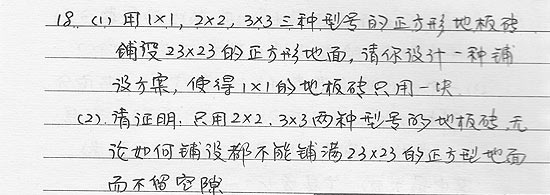 18. (1) 用1×1, 2×2, 3×3三种型号的正方形地板砖
铺设23×23的正方形地面,请你设计一种铺
设方案,使得1×1的地板砖只用一块.
(2). 请证明:只用2×2, 3×3两种型号的地板砖,无
论如何铺设都不能铺满23×23的正方型地面
而不留空隙